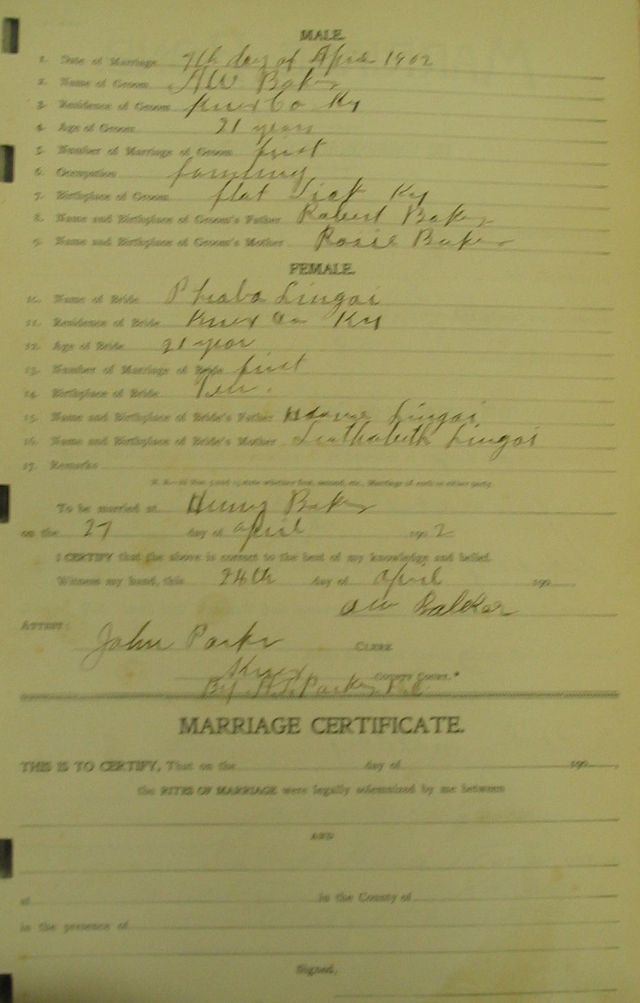 MALE.
1. Date of Marriage 7th day of April 1902
2. Name of Groom AW Baker
3. Residence of Groom Knox Co Ky
4. Age of Groom 21 years
5. Number of Marriage of Groom first
6. Occupation farming
7. Birthplace of Groom flat Lick Ky
8. Name and Birthplace of Groom's Father Robert Baker
9. Name and Birthplace of Groom's Mother Rosie Baker
FEMALE.
10. Name of Bride Lingar
11. Residence of Bride Knox Co Ky
12. Age of Bride 21 year
13. Number of Marriage of Bride first
14. Birthplace of Bride Ten.
15. Name and Birthplace of Bride's Father Lingar
16. Name and Birthplace of Bride's Mother Lingar
17. Remarks
To be married at Henry Baker
on the 27 day of april 1902
I CERTIFY that the above is correct to the best of my knowledge and belief.
Witness my hand, this 24th day of april 190
AW Balker
ATTEST:
John Parker CLERK
Knox COUNTY COURT.*
By Parker D.C.
MARRIAGE CERTIFICATE.
THIS IS TO CERTIFY, That on the day of 190
the RITES OF MARRIAGE were legally solemnized by me between
AND
at in the County of
in the presence of
Signed,